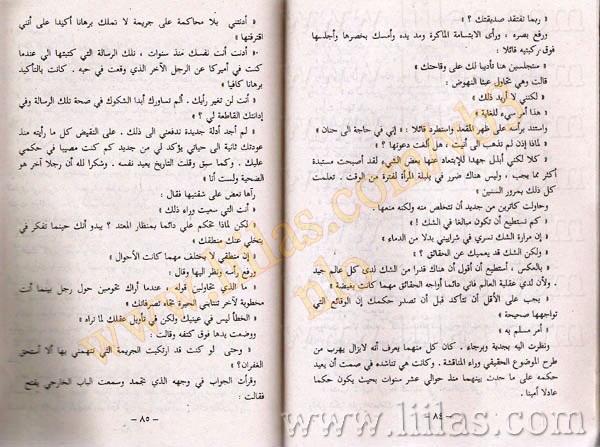 « ربما تفتقد صديقتك ؟ »
ورفع بصره ، ورأى الابتسامة الماكرة ومد يده وأمسك بخصرها وأجلسها
فوق ركبتيه قائلا :
« ستجلسين هنا تأديبا لك على وقاحتك »
قالت وهي تحاول عبثا النهوض :
« لكنني لا أريد ذلك »
« هذا أمر سيء للغاية »
واستند برأسه على ظهر المقعد واستطرد قائلا : « إني في حاجة الى حنان »
« لماذا إذن لم تذهب الى أنيت ، هل ألفت دعوتها ؟ »
« كلا لكني أبذل جهدا للإبتعاد عنها بعض الشيء لقد أصبحت مستبدة
أكثر مما يجب ، وليس هناك ضرر في بلبلة المرأة لفترة من الوقت . تعلمت
كل ذلك بمرور السنين »
وحاولت كاترين من جديد أن تتخلص منه ولكنه منعها .
« كم تستطيع أن تكون مبالغا في الشك ! »
« إن مرارة الشك تسري في شراييني بدلا من الدماء »
« ولكن الشك قد يعميك عن الحقائق ؟ »
« بالعكس ، أستطيع أن أقول أن هناك قدرا من الشك لدى كل عالم جيد
، ولأن لدي عقلية العالم فاني دائما أواجه الحقائق مهما كانت بغيضة »
« يجب على الأقل أن تتأكد قبل أن تصدر حكمك إن الوقائع التي
تواجهها صحيحة »
« أمر مسلم به »
ونظرت اليه بجدية وبرجاء . كان كل منهما يعرف أنه لايزال يهرب من
طرح الموضوع الحقيقي وراء المناقشة . وكانت هي تناشده في صمت أن يعيد
حكمه على ما حدث بينهما منذ حوالي عشر سنوات بحيث يكون حكما
عادلا أمينا .
– ٨٤ –
« أدنتني بلا محاكمة على جريمة لا تملك برهانا أكيدا على أنني
اقترفتها »
« أدنت أنت نفسك منذ سنوات ، تلك الرسالة التي كتبتها الي عندما
كنت في أميركا عن الرجل الآخر الذي وقعت في حبه . كانت بالتأكيد
برهانا كافيا »
« أنت لن تغير رأيك . ألم تساورك أبدا الشكوك في صحة تلك الرسالة وفي
إدانتك القاطعة لي ؟ »
« لم أجد أدلة جديدة تدفعني الى ذلك . على النقيض كل ما رأيته منذ
عودتك ثانية الى حياتي يؤكد لي من جديد كم كنت مصيبا في حكمي
عليك . وكما سبق وقلت التاريخ يعيد نفسه . وشكرا لله أن رجلا آخر هو
الضحية ولست أنا »
رآها تعض على شفتيها فقال :
« أنت التي سعيت وراء ذلك »
« ولكن لماذا تحكم علي دائما بمنظار المعتد ؟ يبدو أنك حينما تفكر في
يتخلى عنك منطقك »
« إن منطقي لا يختلف مهما كانت الأحوال »
ورفع رأسه ونظر اليها وقال :
« ما الذي تحاولين قوله . عندما أراك تحومين حول رجل بينما أنت
مخطوبة لآخر تنتابني الحيرة تجاه تصرفاتك »
« الخطأ ليس في عينيك ولكن في تأويل عقلك لما تراه »
ووضعت يدها فوق كتفه وقالت :
« وحتى لو كنت قد ارتكبت الجريمة التي تتهمني بها ألا أستحق
الغفران؟ »
وقرأت الجواب في وجهه الذي تجمد وسمعت الباب الخارجي يفتح
فقالت :
– ٨٥ –
www.liilas.com